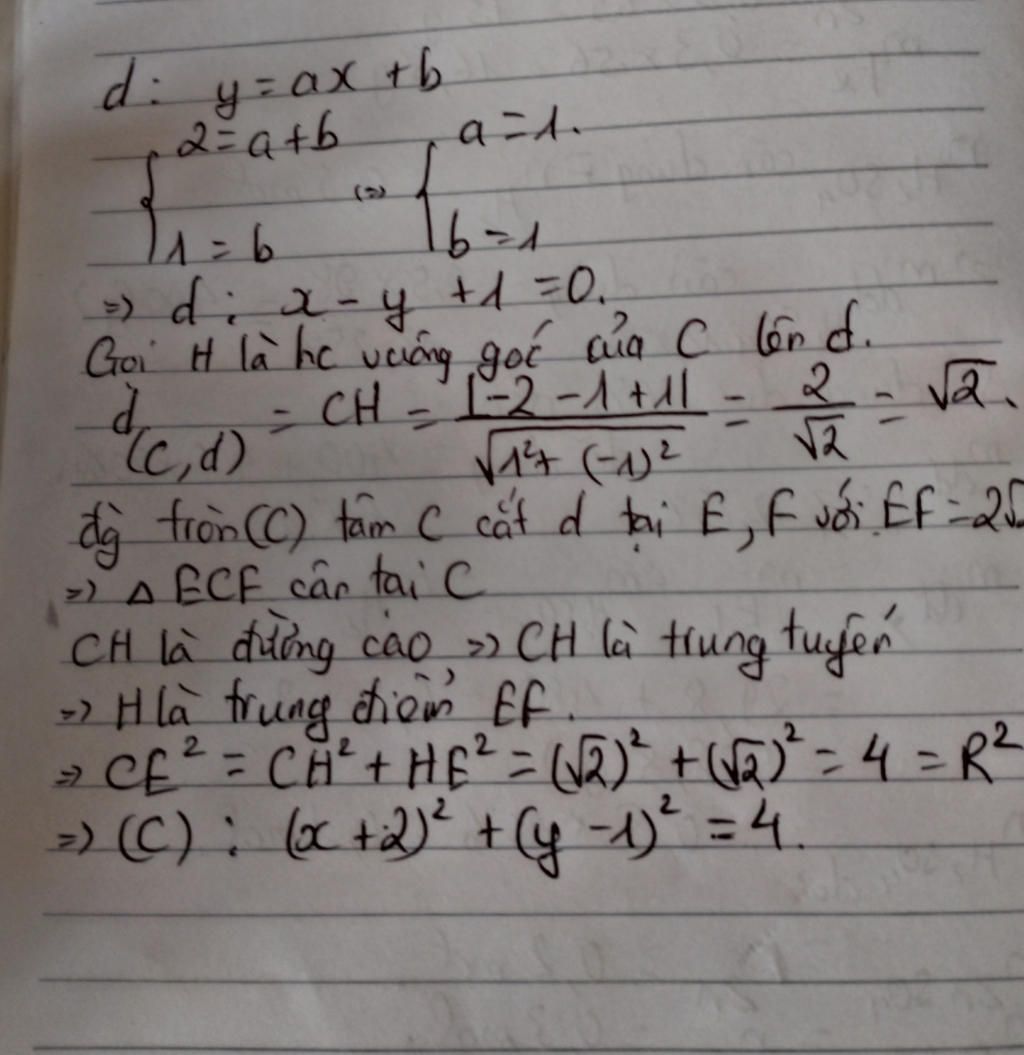 d: y = ax + b
{ 2 = a + b <=> { a = 1.
1 = b b = 1
=> d: x - y + 1 = 0.
Gọi H là hc vuông góc của C lên d.
d(C,d) = CH = |-2 - 1 + 1| / √(1² + (-1)²) = 2/√2 = √2.
đg tròn (C) tâm C cắt d tại E, F với EF = 2√
=> Δ ECF cân tại C
CH là đường cao => CH là trung tuyến
=> H là trung điểm EF.
=> CE² = CH² + HE² = (√2)² + (√2)² = 4 = R²
=> (C): (x + 2)² + (y - 1)² = 4.